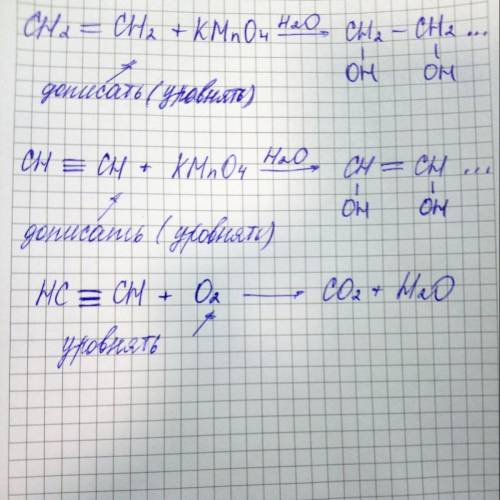 CH₂ = CH₂ + KMnO₄ H₂O → CH₂ – CH₂ ...
OH OH
дописать (уровнять)
CH ≡ CH + KMnO₄ H₂O → CH = CH ...
OH OH
дописать (уровнять)
HC ≡ CH + O₂ → CO₂ + H₂O
уровнять